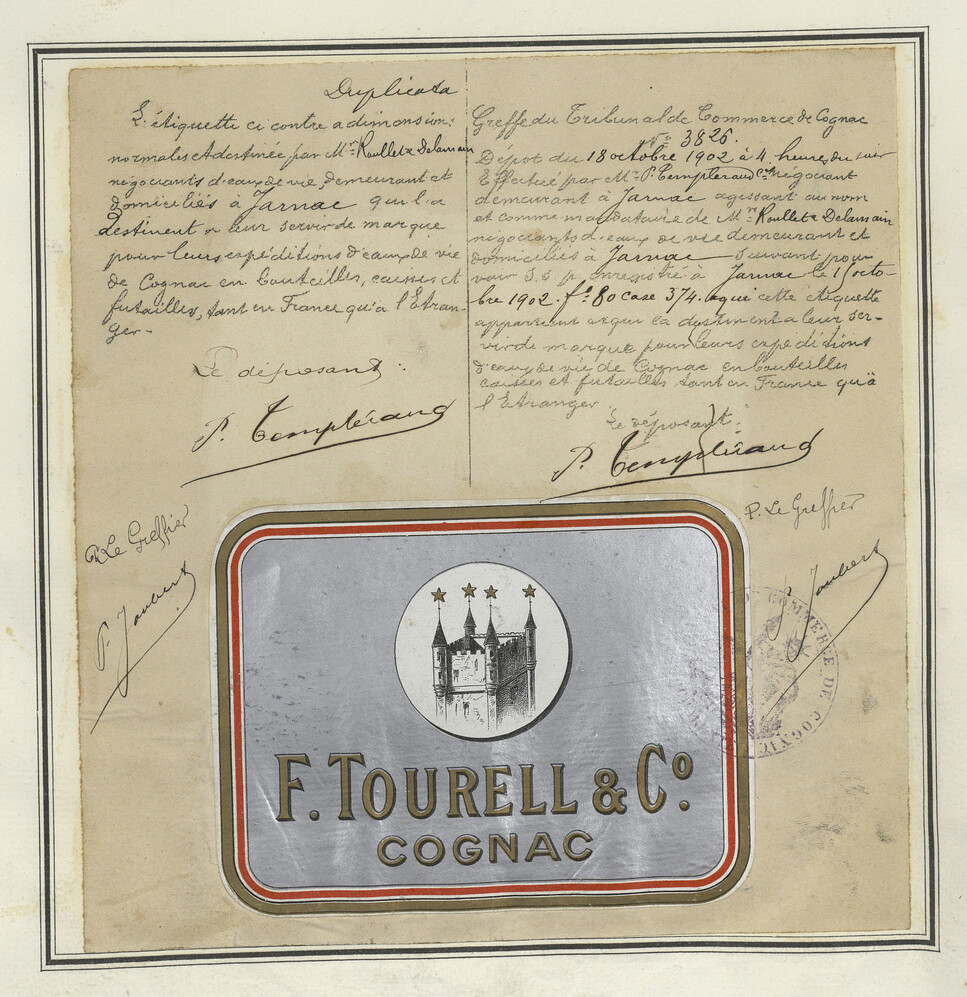 Duplicata
L'étiquette ci contre a dimensions
normales et destinée par Mrs Roullet & Delamain
négociants d'eaux de vie, demeurant et
domiciliés à Jarnac qui la
destinent a leur servir de marque
pour leurs expéditions d'eaux de vie
de Cognac en bouteilles, caisses et
futailles, tant en France qu'à l'Etran-
ger-
Le déposant:
P. Templéraud
P. Le Greffier
P. Joubert
Greffe du Tribunal de Commerce de Cognac
No 3826.
Dépot du 18 octobre 1902 à 4 heures du soir
Effectué par Mr P. Templeraud négociant
demeurant à Jarnac agissant au nom
et comme mandataire de Mrs Roullet & Delamain
négociants d'eaux de vie demeurant et
domiciliés à Jarnac suivant pou-
voir s.s.p. enregistré à Jarnac le 15 octo-
bre 1902. fo 80 case 374. à qui cette étiquette
appartient et qui la destinent a leur ser-
vir de marque pour leurs expéditions
d'eaux de vie de Cognac en bouteilles
caisses et futailles tant en France qu'à
l'Etranger
Le déposant:
P. Templéraud
P. Le Greffier
P. Joubert
COMMERCE DE COGNAC
F. TOURELL & Co.
COGNAC